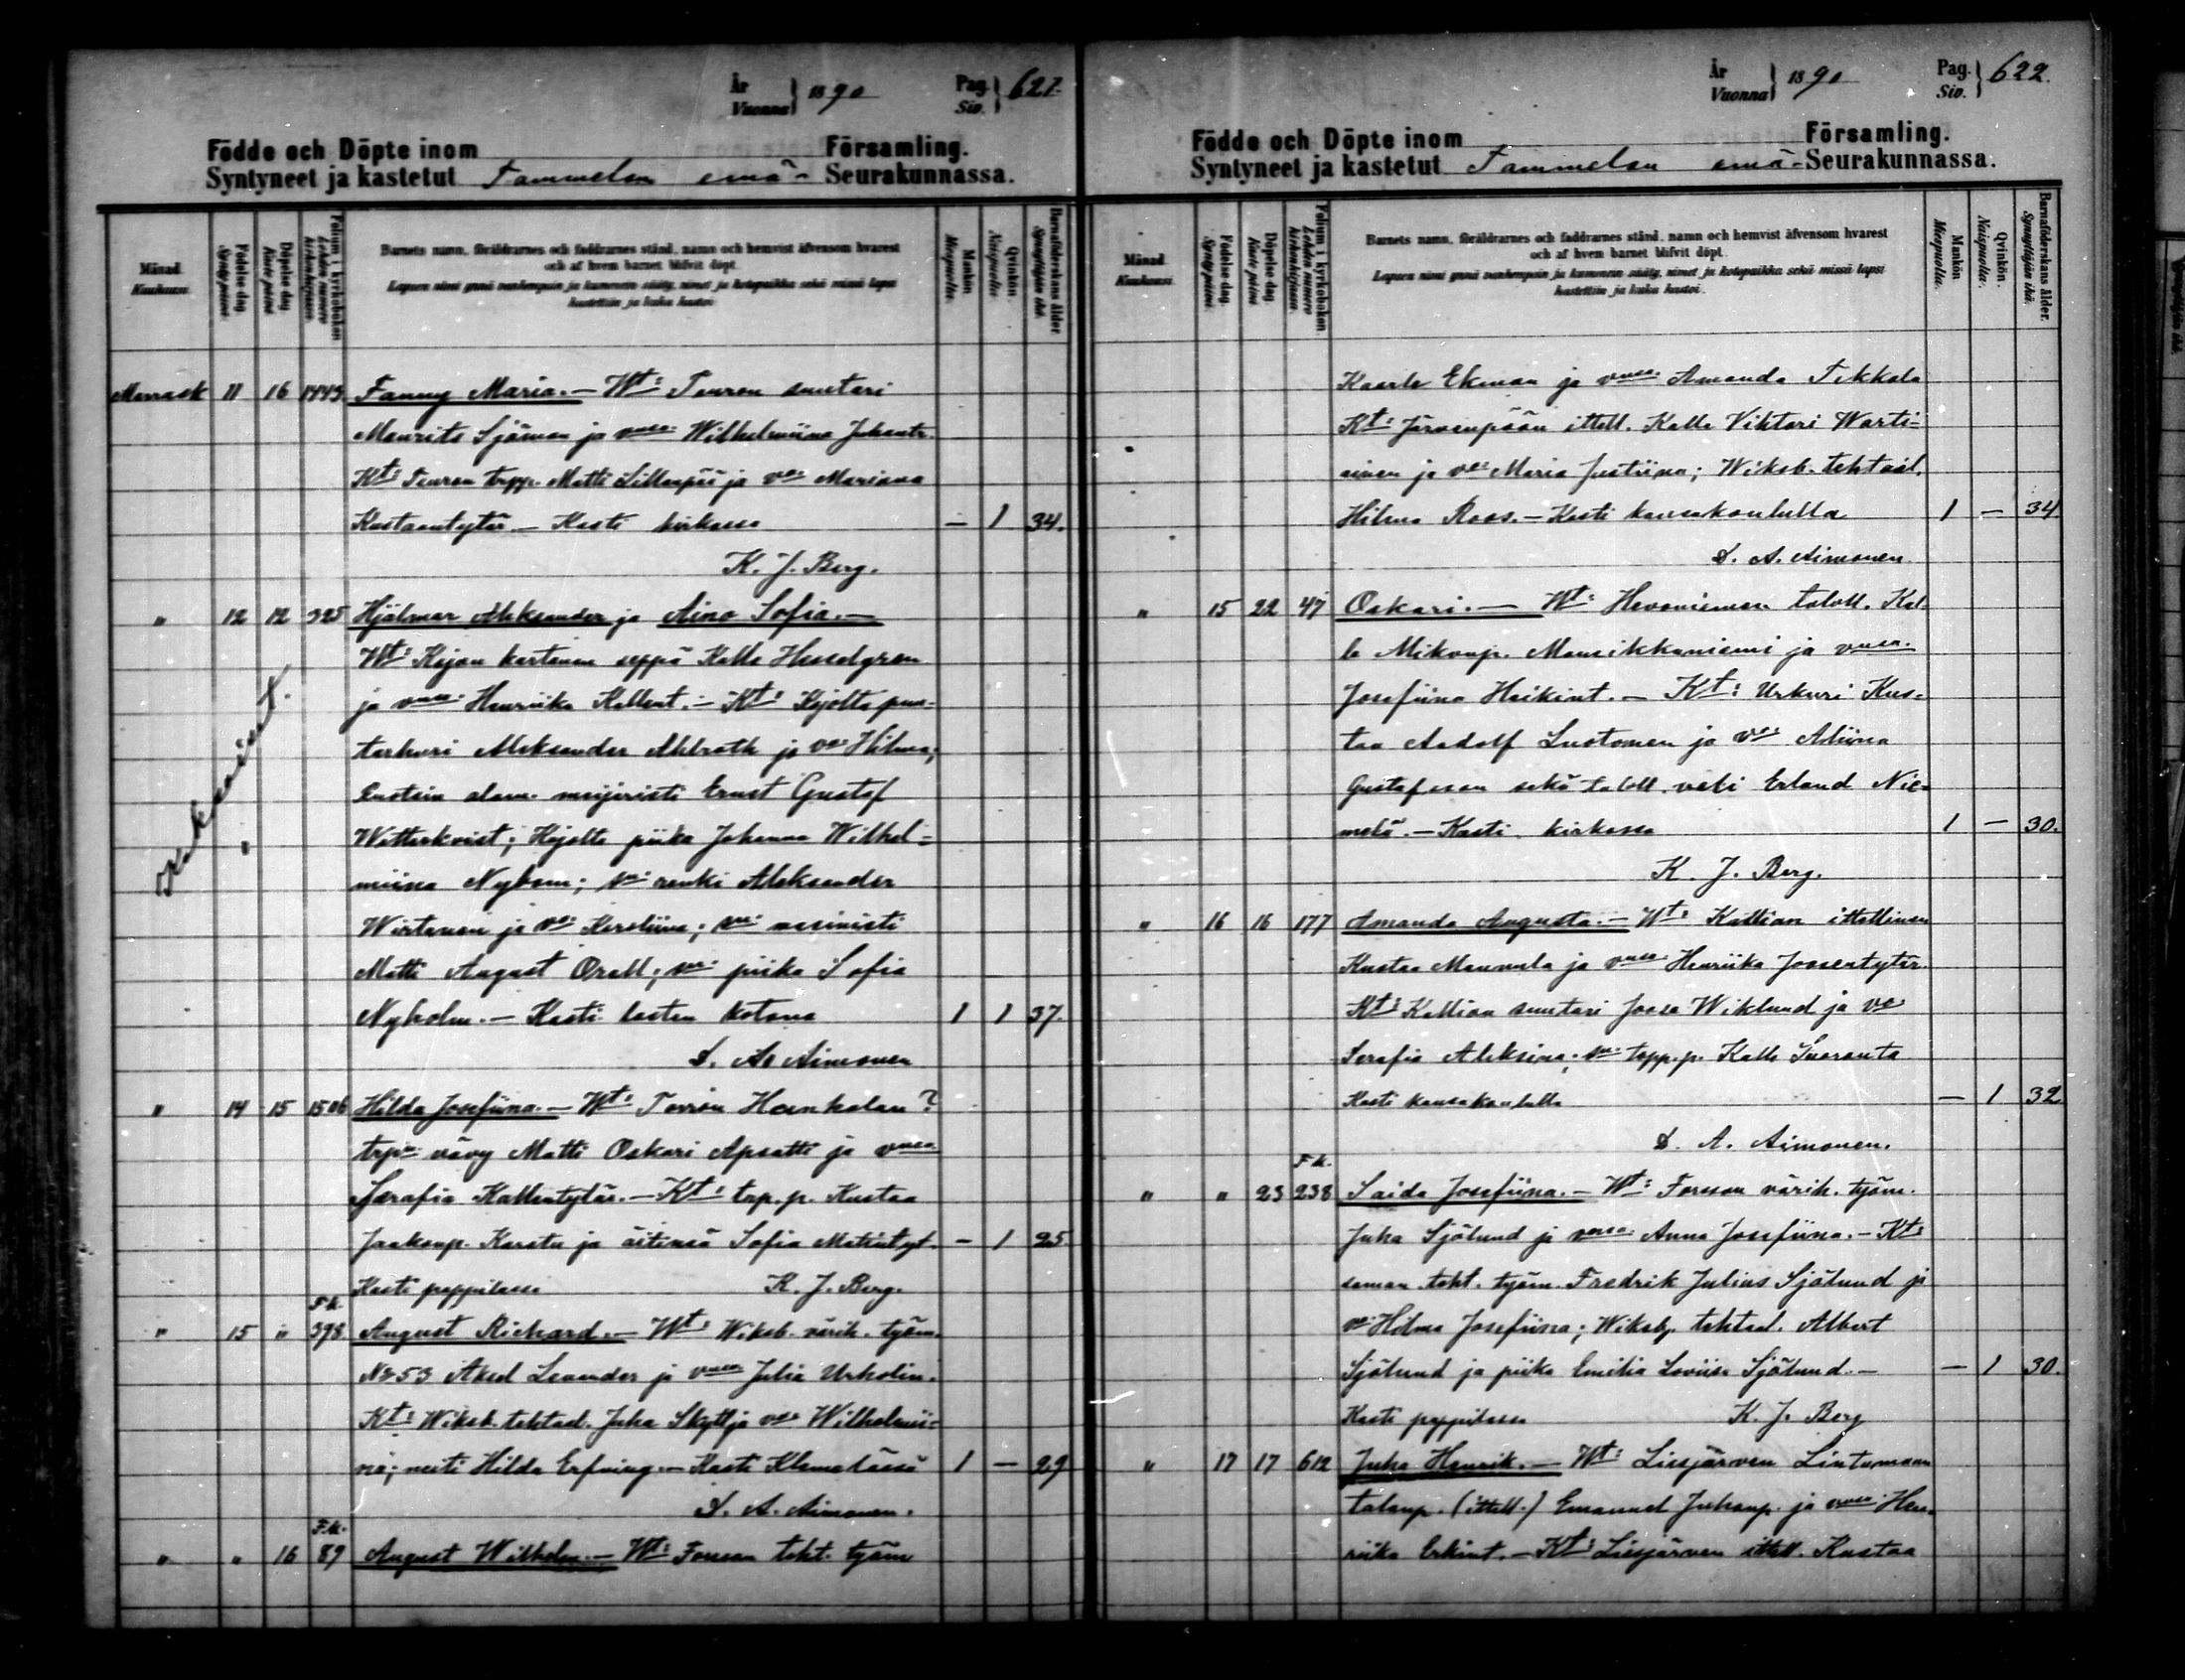 År
Vuonna } 1890 Pag.
Siv. } 621.
Födde och Döpte inom Församling.
Syntyneet ja kastetut Tammelan emä- Seurakunnassa.
Månad.
Kuukausi.
Födelse dag.
Synty päivä.
Döpelse dag.
Kaste päivä.
Folium i kyrkoboken
Lehden numero kirkonkirjassa.
Barnets namn, föräldrarnes och faddrarnes stånd, namn och hemvist äfvensom hvarest
och af hvem barnet blifvit döpt.
Lapsen nimi ynnä vanhempain ja kummein sääty, nimet ja kotopaikka sekä missä lapsi
kastettiin ja kuka kastoi.
Mankön
Miespuolia.
Qvinkön.
Naispuolia.
Barnaföderskans ålder.
Synnyttäjän ikä.
Marrask 11 16 1449. Fanny Maria. — Wt: Teuron suutari
Maurits Sjöman ja vmsa. Wilhelmiina Juhantr.
Kt: Teuron torpp. Matti Sillanpää ja vo: Mariana
Kustaantytär — Kasti kirkossa — 1 34.
K. J. Berg.
" 12 12 325 Hjälmar Aleksander ja Aino Sofia. —
Wt: Kojon kartanon seppä Kalle Huselgren
ja vmsa. Henriika Kallent. — Kt: Kojolta puu-
tarhuri Aleksander Ahlroth ja vo: Hilma,
alam. meijeristi Ernst Gustaf
Wetterkvist; Kojolta piika Johanna Wilhel-
miina Nybom; sm: renki Aleksander
Wirtanen ja vo: Karoliina; sm: masinisti
Matti August Orell; sm: piika Sofia
Nyholm. — Kasti lasten kotona 1 1 37.
Kaksoiset.
"
S. A. Aimonen
" 14 15 1506 Hilda Josefiina. — Wt: Torron Hankalan?
trpn: vävy Matti Oskari Apsatti ja vmsa.
Serafia Kallentytär. — Kt: tor. p. Kustaa
Jaakonp. Karstu ja äitinsä Sofia Matintyt. — 1 25
Kasti pappilassa K. J. Berg.
F.k.
" 15 " 398 August Richard. — Wt: Wiksb. värih. työm.
No 53 Aksel Leander ja vmsa Julia Urholin.
Kt: Wiksb. tehtaal. Juha Skytt ja vo: Wilhelmii-
na; neiti Hilda Erfving. — Kasti Klemelässä 1 — 29
S. A. Aimonen.
F.k.
" " 16 89 August Wilhelm. — Wt: Forssan teht. työm
År
Vuonna } 1890 Pag.
Siv. } 622.
Födde och Döpte inom Församling.
Syntyneet ja kastetut Tammelan emä- Seurakunnassa.
Månad
Kuukausi.
Födelse dag.
Synty päivä.
Döpelse dag
Kaste päivä.
Folium i kyrkoboken.
Lehden numero kirkonkirjassa.
Barnets namn, föräldrarnes och faddrarnes stånd, namn och hemvist äfvensom hvarest
och af hvem barnet blifvit döpt.
Lapsen nimi ynnä vanhempain ja kummein sääty, nimet ja kotopaikka sekä missä lapsi
kastettiin ja kuka kastoi.
Mankön
Miespuolia.
Qvinkön.
Naispuolia.
Barnaföderskans ålder.
Synnyttäjän ikä.
Kaarle Ekman ja vmsa. Amanda Tekkala
Kt: Järvenpään ittell. Kalle Vihtori Warti-
ainen ja vo: Maria Justiina; Wiksb. tehtaal.
Hilma Roos. — Kasti kansakoululla 1 — 34
S. A. Aimonen.
" 15 22 47 Oskari. — Wt: Hevoniemen taloll. Kal
le Mikonp. Mansikkaniemi ja vmsa.
Josefiina Heikint. — Kt: Urkuri Kus-
taa Aadolf Lustonen ja vo: Aliina
Gustafsson sekä taloll. veli Erland Nie-
melä. — Kasti kirkossa 1 — 30.
K. J. Berg.
" 16 16 177 Amanda Augusta. — Wt: Kallion itellinen
Kustaa Mannula ja vmsa Henriika Joosentytär.
Kt: Kallion suutari Joose Wiklund ja vo
Serafia Aleksina; sm: torpp. p. Kalle Suoranta
Kasti kansakoululla — 1 32
S. A. Aimonen.
F.k.
" " 23 238 Saida Josefiina. — Wt: Forssan värih. työm.
Juha Sjölund ja vmsa. Anna Josefiina. — Kt:
saman teht. työm. Fredrik Julius Sjölund ja
vo: Hilma Josefiina; Wiksb. tehtaal. Albert
Sjölund ja piika Emilia Loviisa Sjölund. — — 1 30.
Kasti pappilassa K. J. Berg
" 17 17 612 Juha Henrik. — Wt: Liesjärven Lintumaan
talonp. (ittell.) Emanuel Juhanp. ja vmsa Hen-
riika Erkint. — Kt: Liesjärven ittell. Kustaa